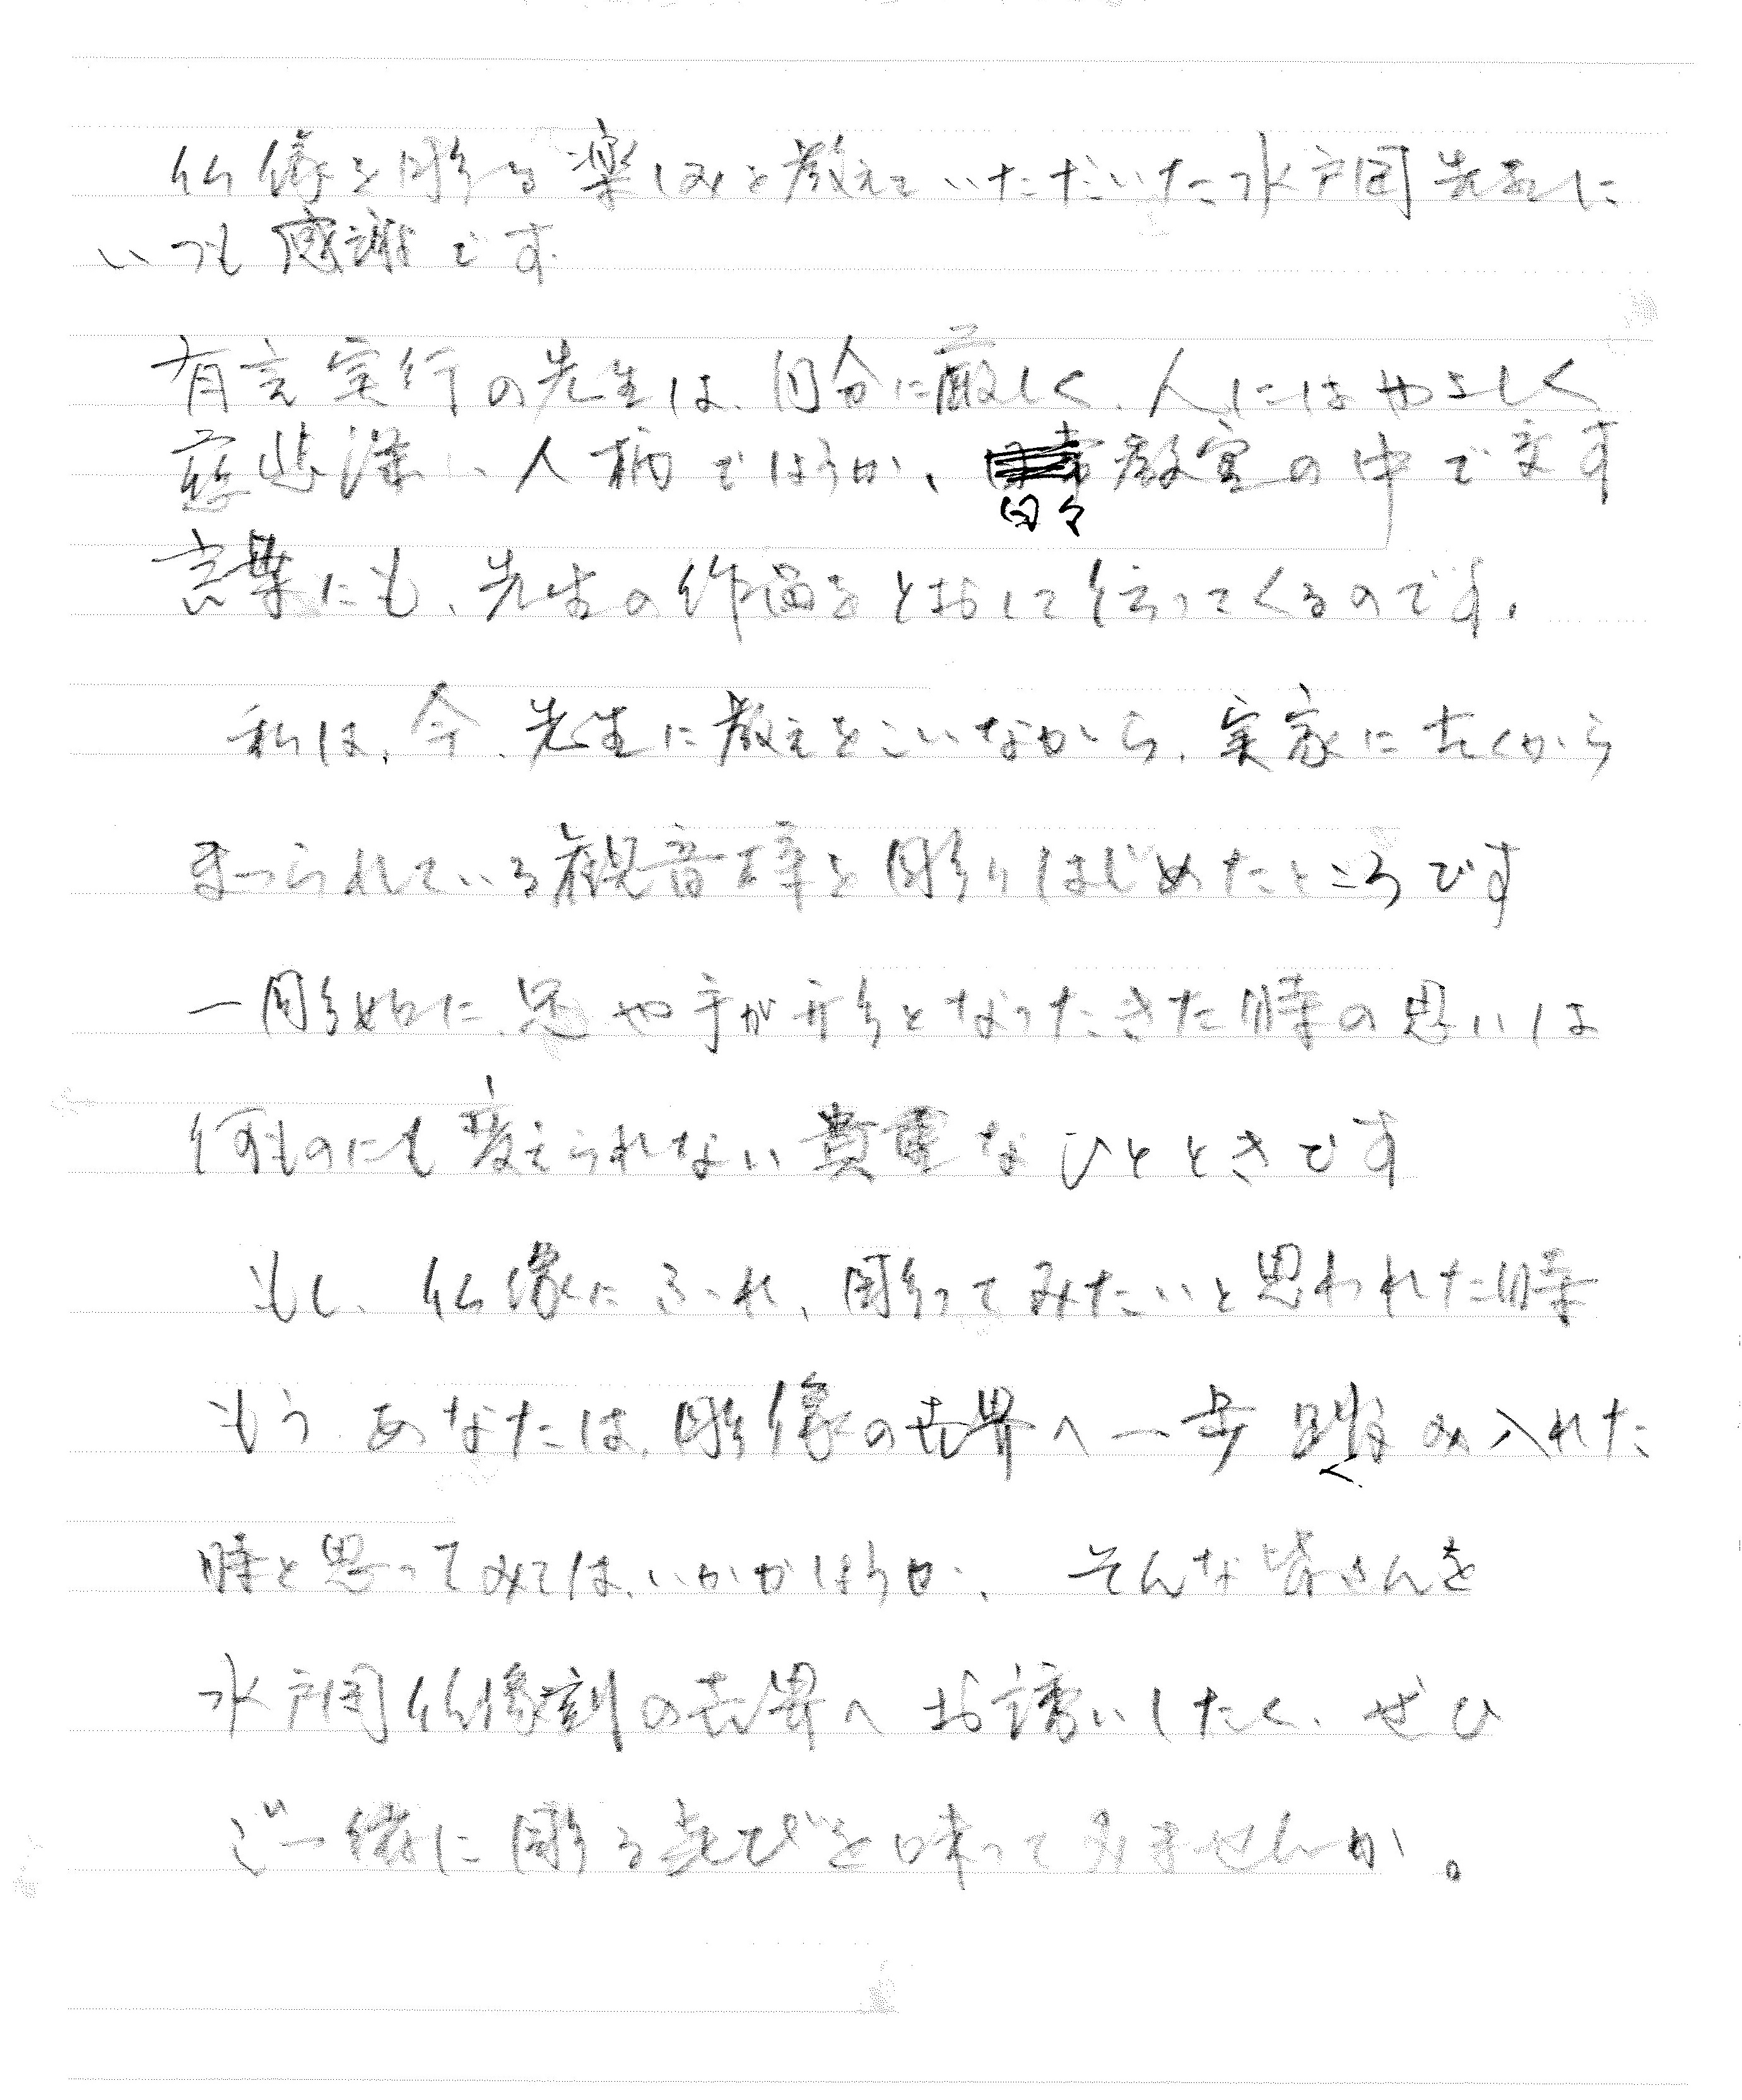 仏像を彫る楽しみを教えていただいた水戸岡先生に
いつも感謝です
有言実行の先生は、自分に厳しく、人にはやさしく
慈悲深い人柄でほうか、日々教室の中で交す
言葉にも、先生の作品をとおして伝ってくるのです。
私は、今、先生に教えをこいながら、実家に古くから
まつられている観音様を彫りはじめたところです
一彫始に、足や手が形となったきた時の思いは
何ものにも変えられない貴重なひとときです
もし、仏像にふれ、彫ってみたいと思われた時
もう、あなたは、彫像の世界へ一歩踏み入れた
時と思ってみては、いかがほうか、そんな皆さんを
水戸岡仏像彫刻の世界へお誘いしたく、ぜひ
ご一緒に彫る喜びを味ってみませんか。